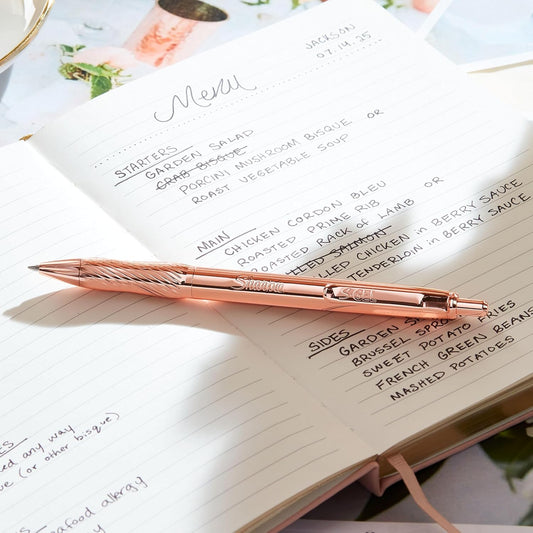 JACKSON
07.14.25
Menu
STARTERS
GARDEN SALAD
CRAB BISQUE
PORCINI MUSHROOM BISQUE OR
ROAST VEGETABLE SOUP
MAIN
CHICKEN CORDON BLEU
ROASTED PRIME RIB
ROASTED RACK of LAMB OR
SALMON
CHICKEN in BERRY SAUCE
TENDERLOIN in BERRY SAUCE
Sharpie
S·GEL
SIDES
GARDEN
BRUSSEL
SWEET POTATO FRIES
FRENCH GREEN BEANS
MASHED POTATOES
any way
(or other bisque)
allergy